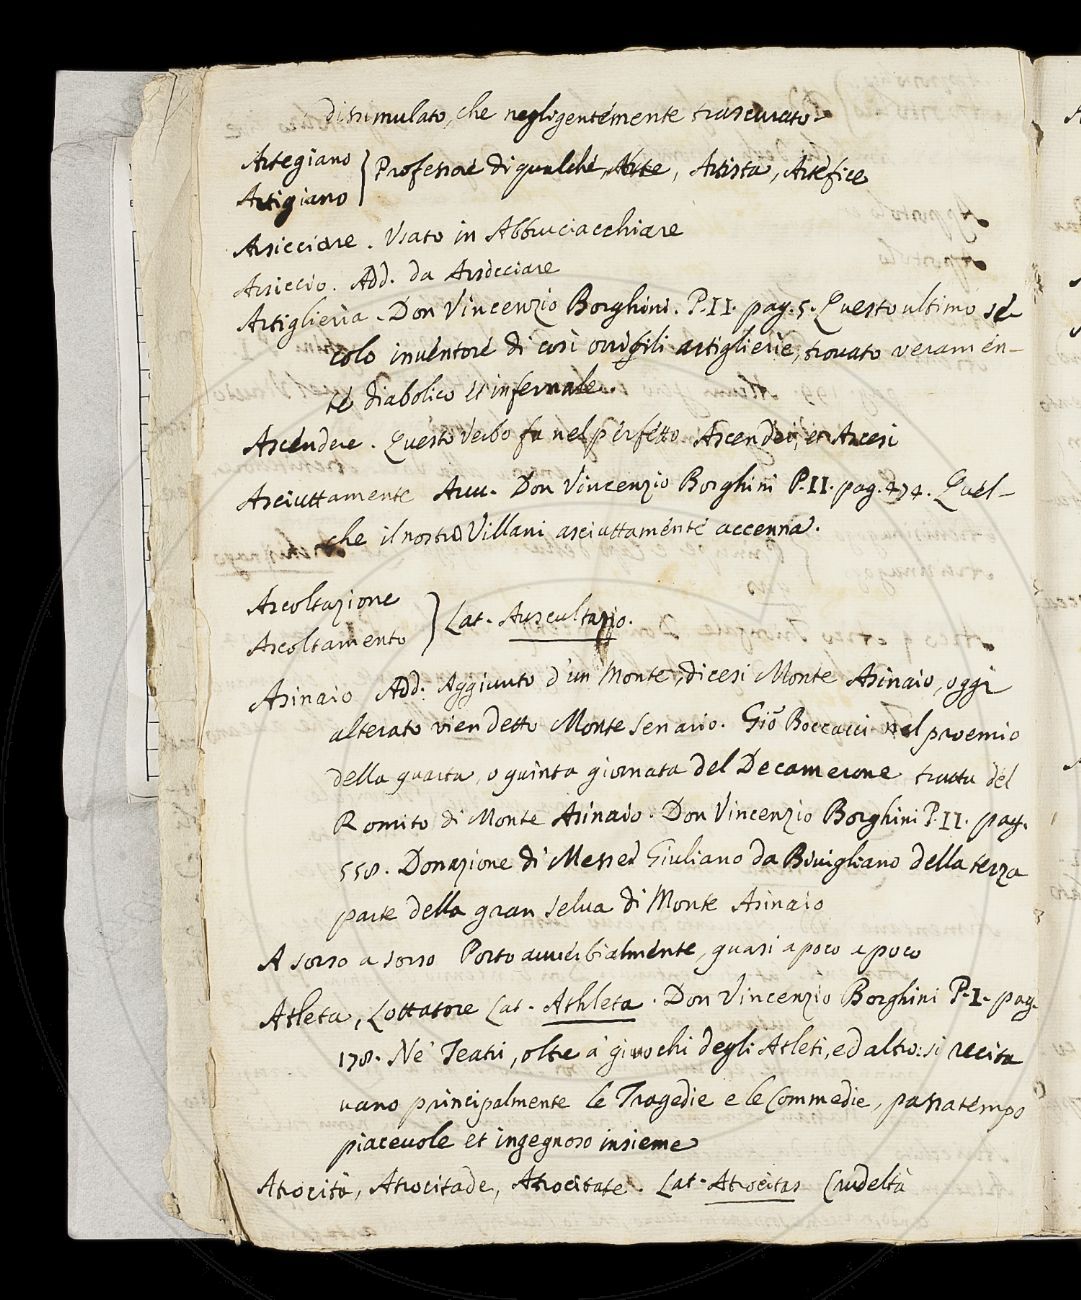 dissimulato, che negligentemente trascurato.
Artegiano
Artigiano } Professore di qualche Arte, Artista, Artefice
Arsicciare. Usato in Abbruciacchiare
Arsiccio. Add. da Arsicciare
Artiglieria. Don Vincenzio Borghini. P. II. pag. 5. Questo ultimo se-
colo inventore di così orribili artiglierie, trovato veramen-
te diabolico et infernale.
Ascendere. Questo Verbo fa nel perfetto Ascendei, et Ascesi
Asciuttamente Avv. Don Vincenzio Borghini P. II. pag. 474. Quel-
che il nostro Villani asciuttamente accenna.
Ascoltazione
Ascoltamento } Lat. Auscultazio.
Asinaio Add: Aggiunto d'un Monte, dicesi Monte Asinaio, oggi
alterato vien detto Monte Senario. Giō Boccacci nel proemio
della quarta, o quinta giornata del Decamerone tratta del
Romito di Monte Asinaio. Don Vincenzio Borghini P. II. pag.
558. Donazione di Messer Giuliano da Bivigliano della terza
parte della gran selva di Monte Asinaio
A sorso a sorso Posto auuerbialmente, quasi a poco a poco
Atleta, Lottatore Lat. Athleta. Don Vincenzio Borghini P. I. pag.
178. Ne' Teatri, oltre a' giuochi degli Atleti, ed altro: si recita
uano principalmente le Tragedie e le Commedie, passatempo
piaceuole et ingegnoso insieme
Atrocità, Atrocitade, Atrocitate. Lat. Atrocitas Crudeltà